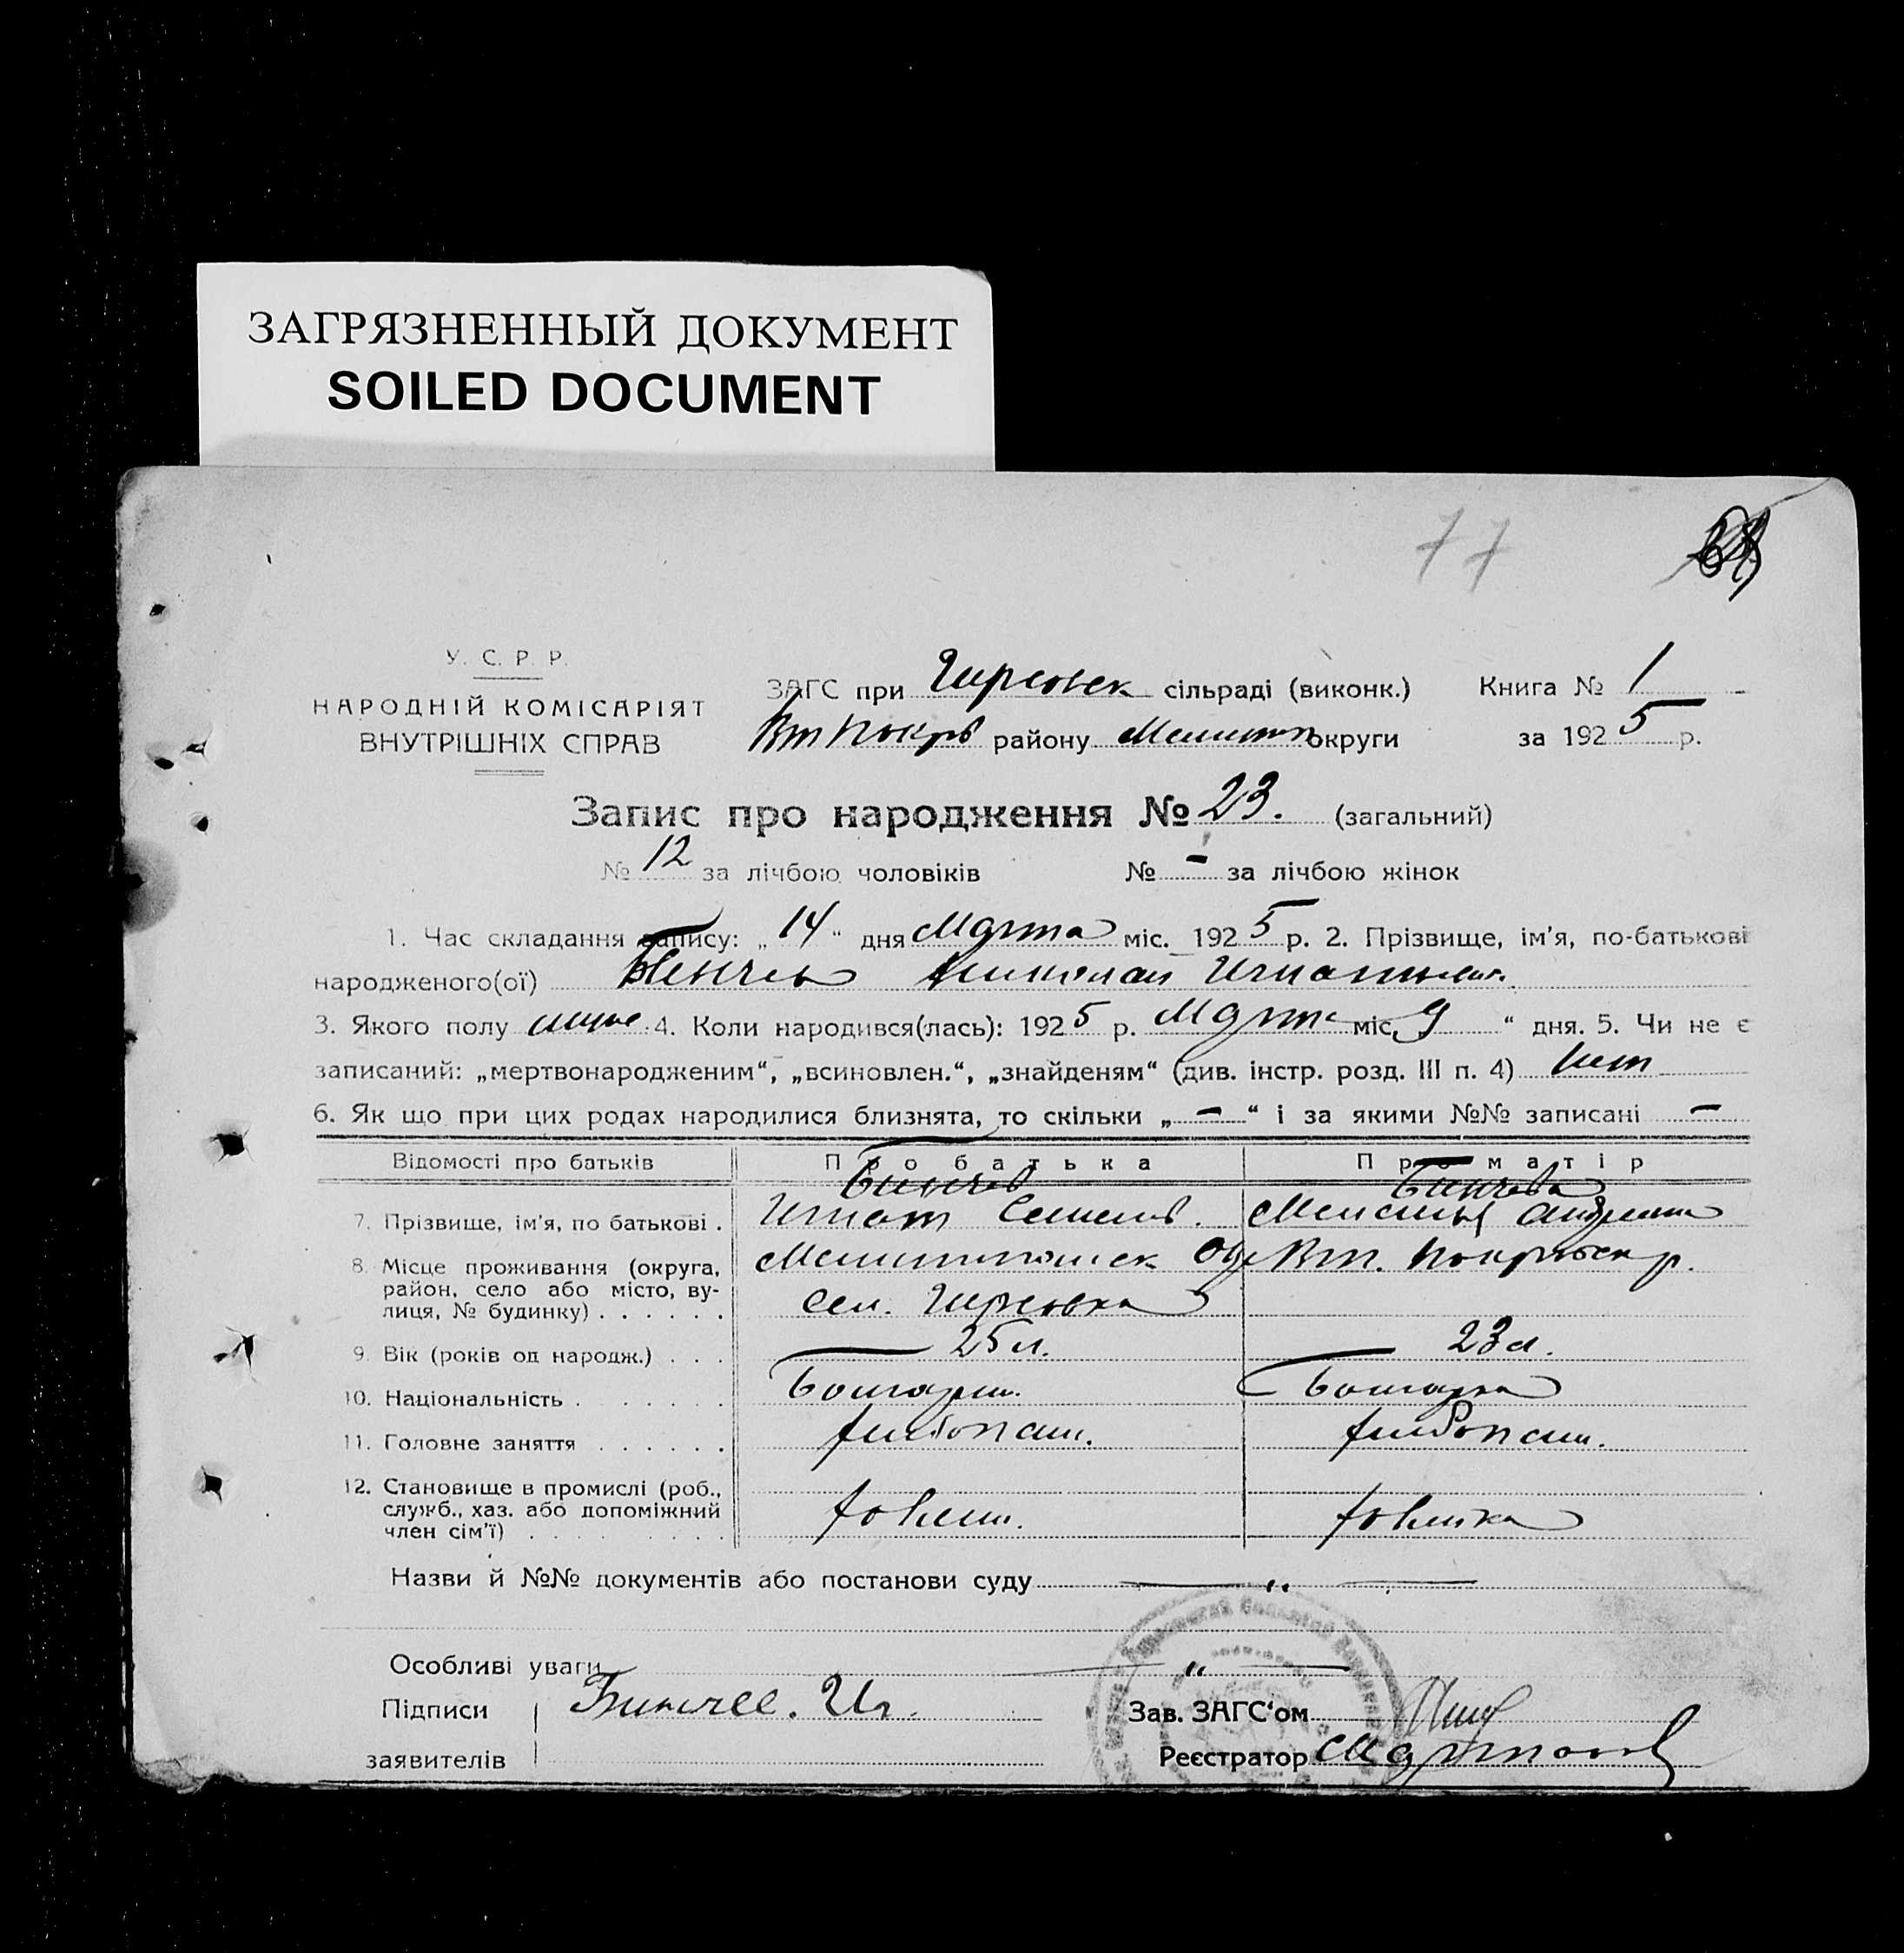 ЗАГРЯЗНЕННЫЙ ДОКУМЕНТ
SOILED DOCUMENT
77
У. С. Р. Р.
НАРОДНІЙ КОМІСАРІЯТ
ВНУТРІШНІХ СПРАВ
ЗАГС при Гирсовск сільраді (виконк.) Книга № 1
району округи за 1925 р.
Запис про народження № 23. (загальний)
№ 12 за лічбою чоловіків № - за лічбою жінок
1. Час складання запису: „14“ дня Марта міс. 1925 р. 2. Прізвище, ім'я, по-батькові
народженого(ої) Бенчев Николай
3. Якого полу муже 4. Коли народився(лась): 1925 р. Марта міс. 9 “ дня. 5. Чи не є
записаний: „мертвонародженим“, „всиновлен.“, „знайденям“ (див. інстр. розд. III п. 4) нет
6. Як що при цих родах народилися близнята, то скільки „-“ і за якими №№ записані -
Відомості про батьків Про батька Про матір
Бинчев Бинчева
7. Прізвище, ім'я, по батькові . Игнат Семенов.
8. Місце проживання (округа, район, село або місто, вулиця, № будинку) . . . . . . Вт. Покровск р.
сел. Гирсовка
9. Вік (років од народж.) . . . 25 л. 23 л.
10. Національність . . . . . . Болгарин. Болгарка
11. Головне заняття . . . . . . хлебопаш. хлебопаш.
12. Становище в промислі (роб., служб., хаз. або допоміжний член сім'ї) . . . . . . хозяин. хозяйка
Назви й №№ документів або постанови суду — „ —
Особливі уваги — „ —
Підписи Бинчев. Иг. Зав. ЗАГС'ом
заявителів Реєстратор